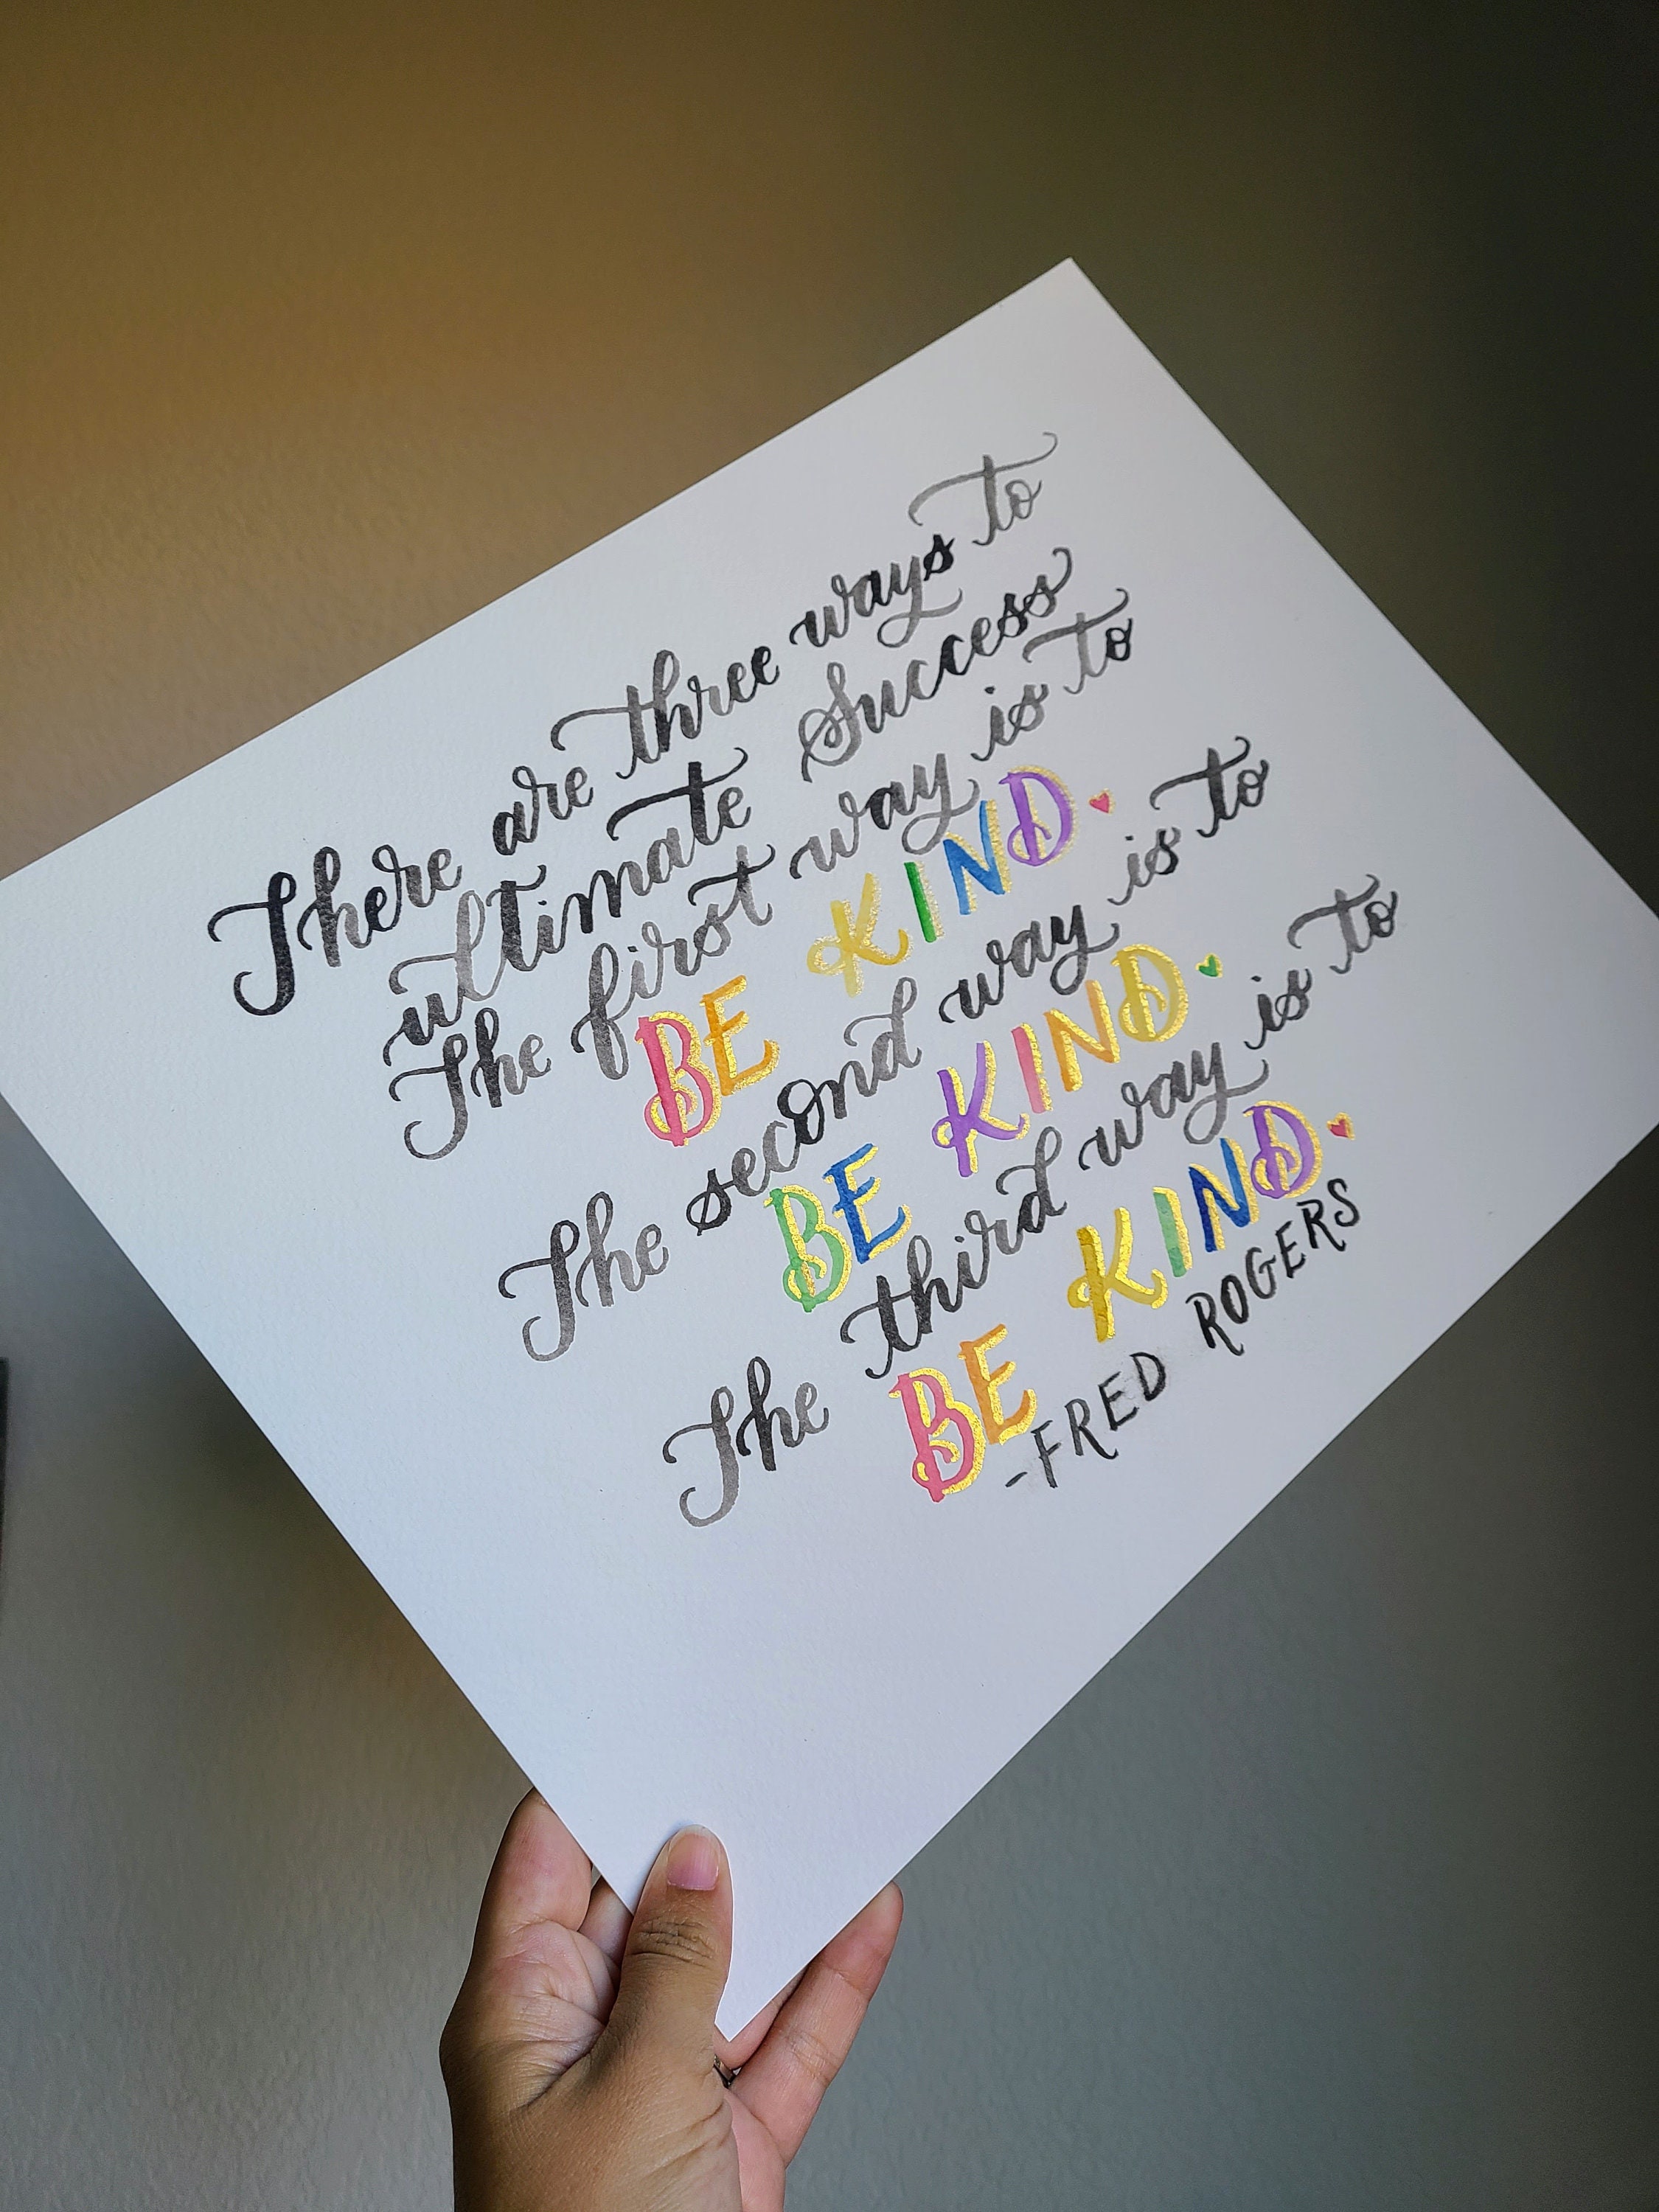 There are three ways to
ultimate Success
The first way is to
BE KIND.
The second way is to
BE KIND.
The third way is to
BE KIND.
-FRED ROGERS